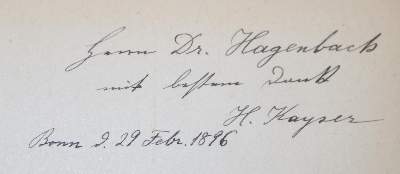 Herrn Dr. Hagenbach
mit bestem Dank
H. Kayser
Bonn d. 29 Febr. 1896